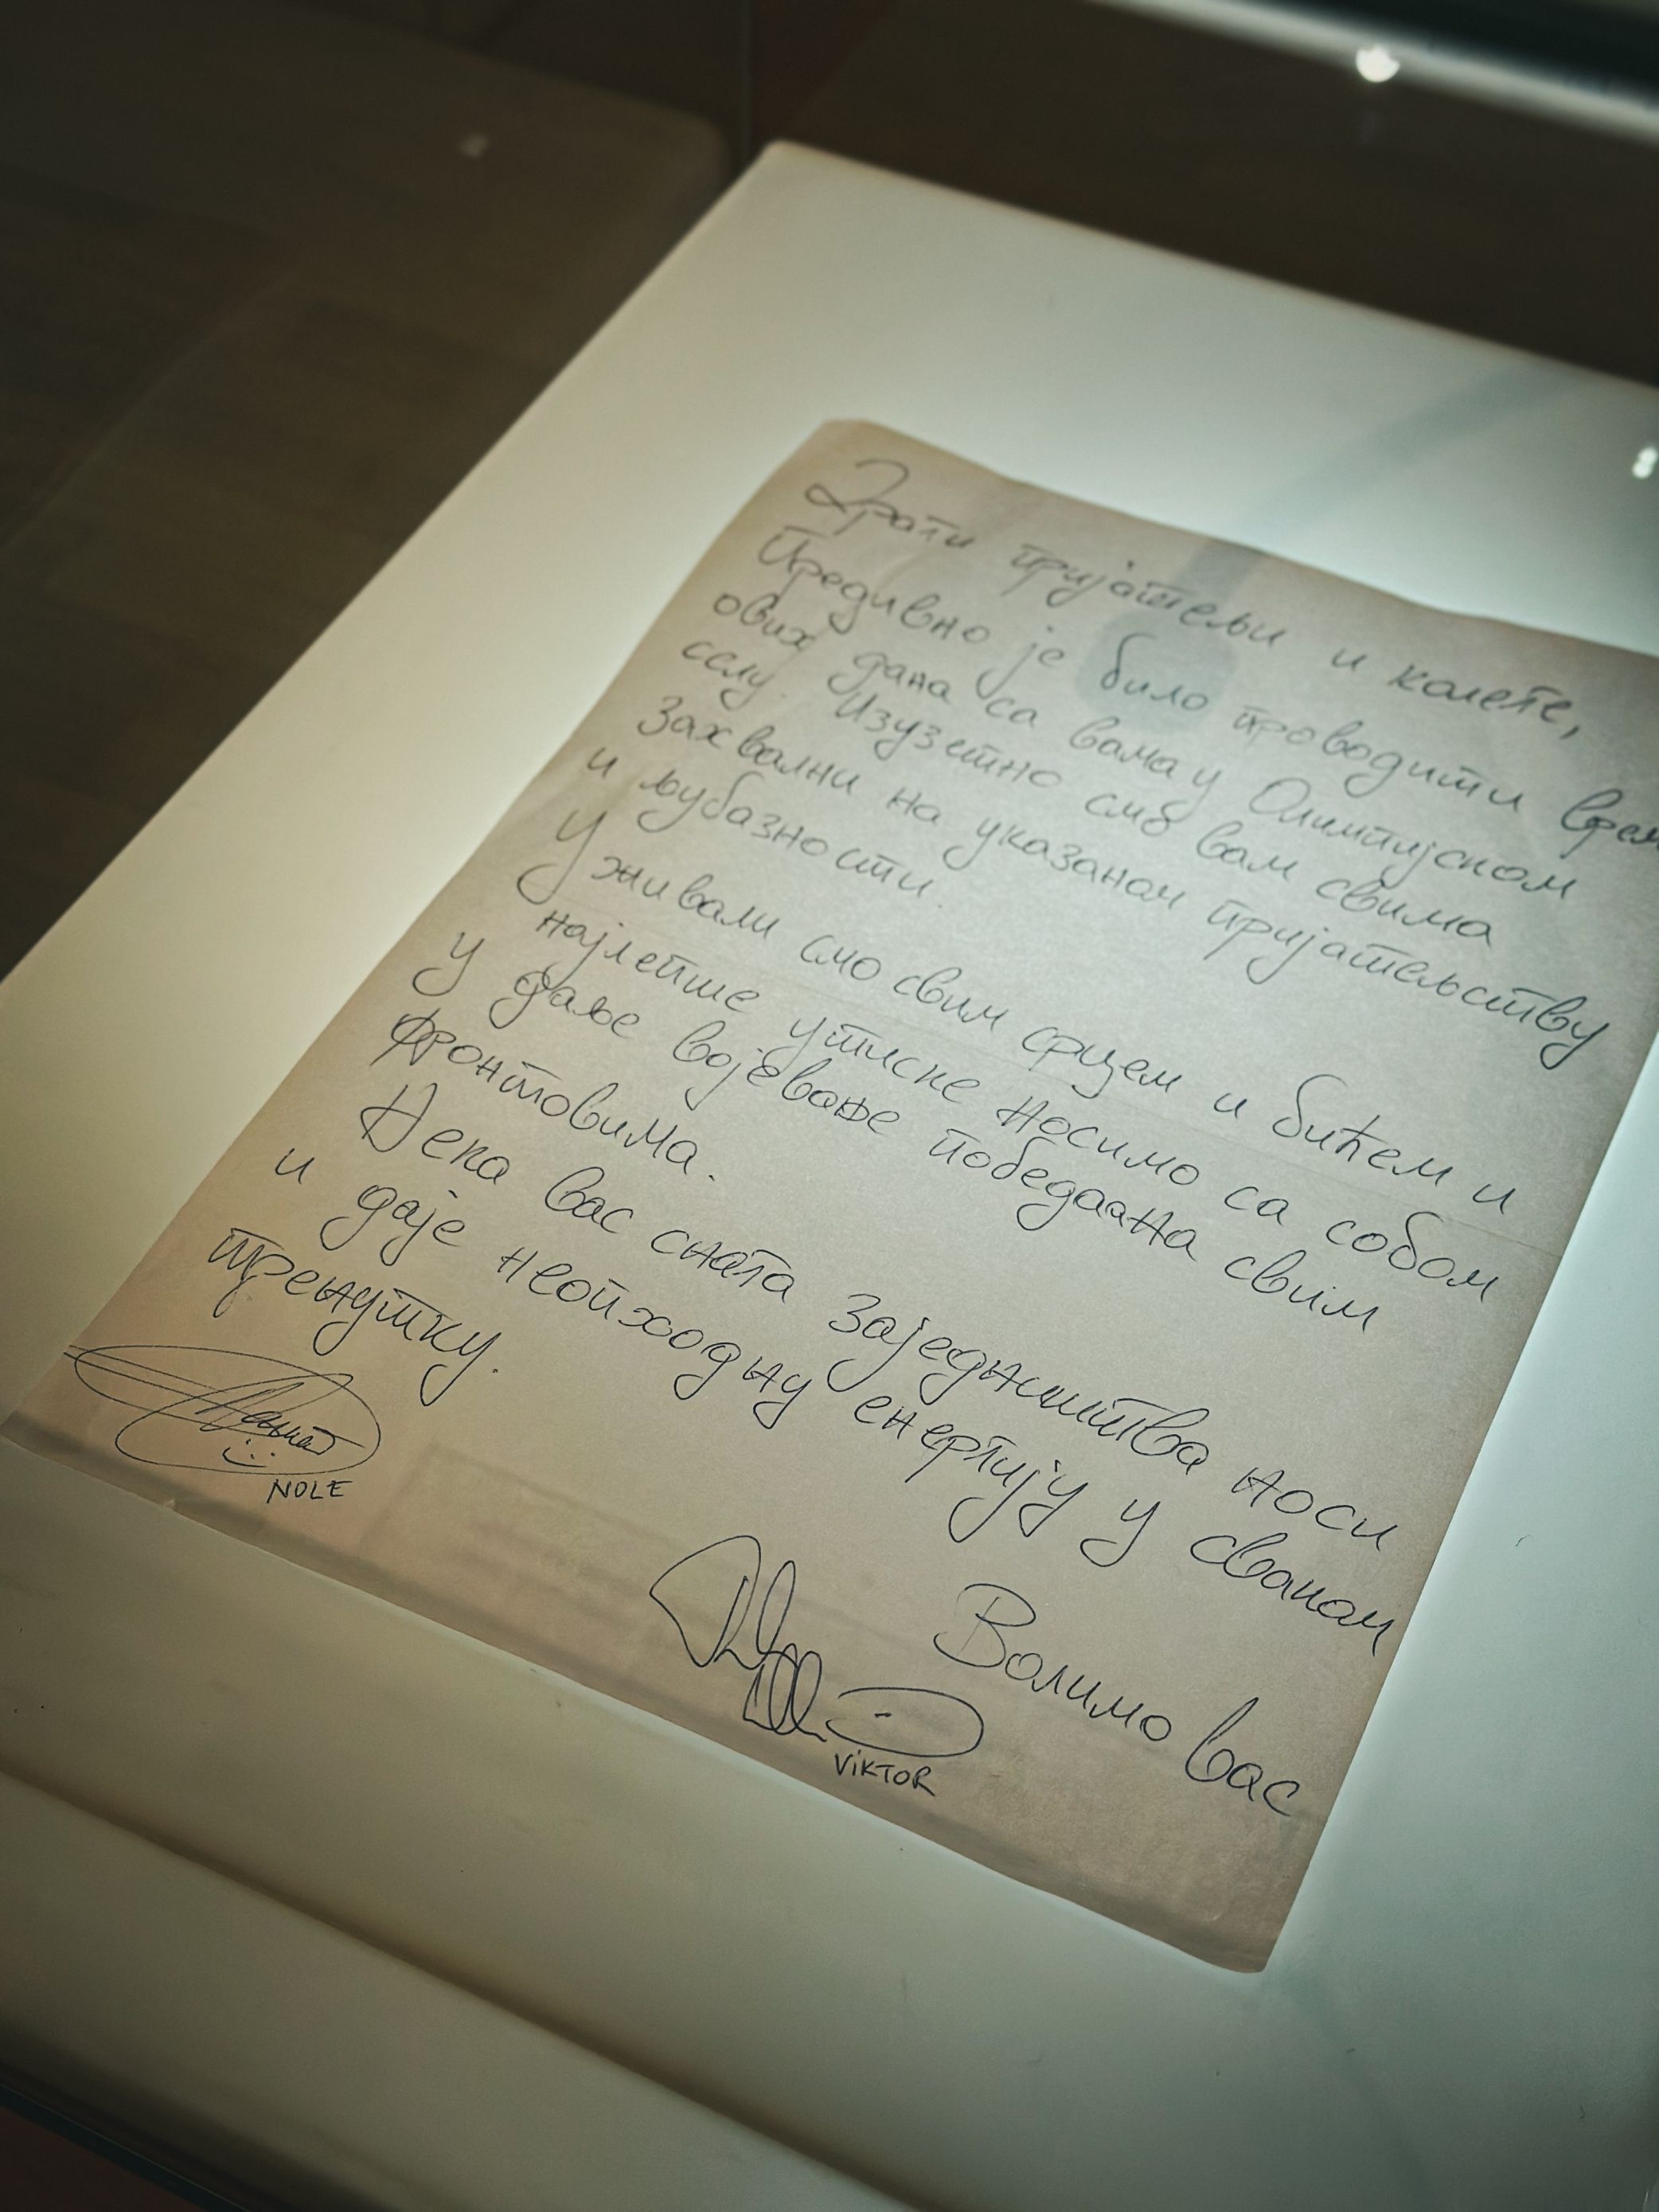 Драги пријатељи и колеге,
Предивно је било проводити врем
ових дана са вама у Олимпијском
селу. Изузетно смо вам свима
захвални на указаном пријатељству
и љубазности.
Уживали смо свим срцем и бићем и
најлепше утиске носимо са собом
у даље војевање победаама свим
фронтовима.
Нека вас снага заједништва носи
и даје неопходну енергију у сваком
тренутку.
Волимо вас
NOLE
VIKTOR